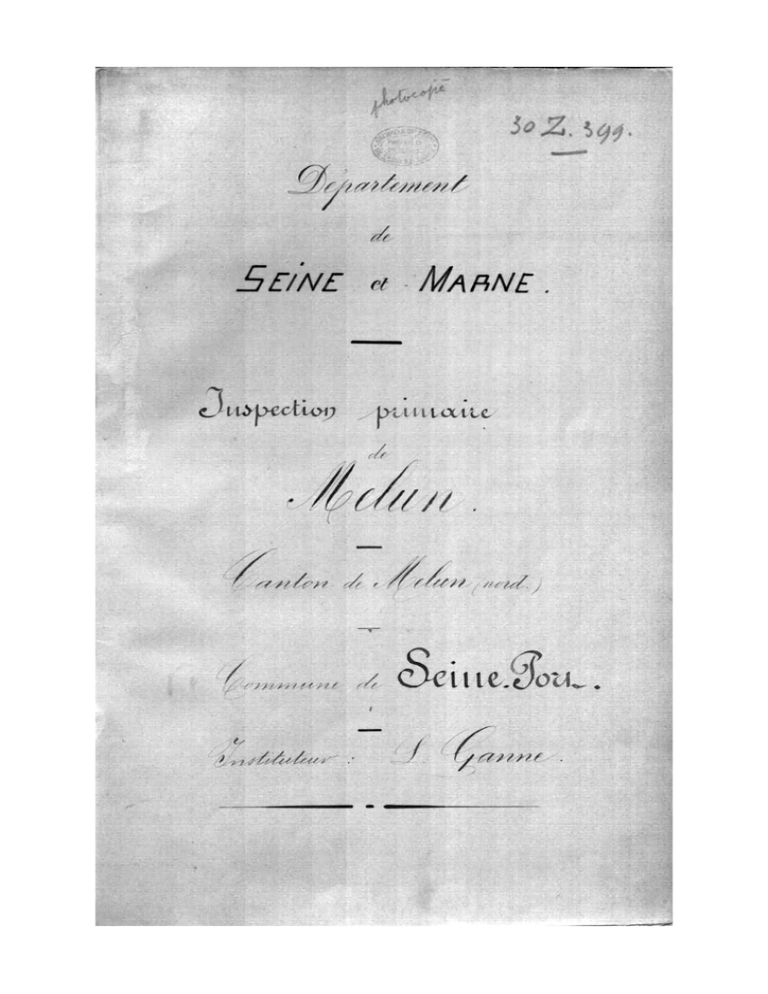 photocopié
30 Z. 399.
Département
de
SEINE et MARNE.
Inspection primaire
de
Melun.
Canton de Melun (nord.)
Commune de Seine-Port.
Instituteur : L. Ganne.